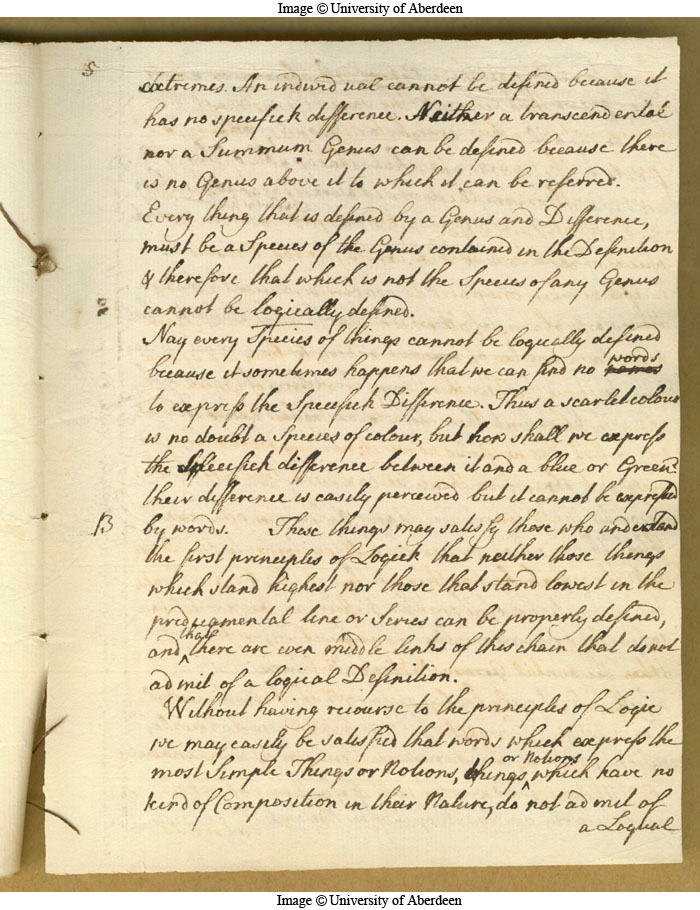 Image © University of Aberdeen
5
extremes. An individual cannot be defined because it
has no specifick difference. Neither a transcendental
nor a Summum Genus can be defined because there
is no Genus above it to which it can be referred.
Every thing that is defined by a Genus and Difference,
must be a Species of the Genus contained in the Definition
& therefore that which is not the Species of any Genus
cannot be logically defined.
Nay every Species of things cannot be logically defined
because it sometimes happens that we can find no names words
to express the Specifick Difference. Thus a scarlet colour
is no doubt a Species of colour, but how shall we express
the specifick difference between it and a blue or Green?
their difference is easily perceived but it cannot be expressed
B by words. These things may satisfy those who understand
the first principles of Logick that neither those things
which stand highest nor those that stand lowest in the
predicamental line or Series can be properly defined,
and that there are even middle links of this chain that do not
admit of a logical Definition.
Without having recourse to the principles of Logic
we may easily be satisfied that words which express the
most Simple Things or Notions, things or Notions which have no
kind of Composition in their Nature, do not admit of
a Logical
Image © University of Aberdeen